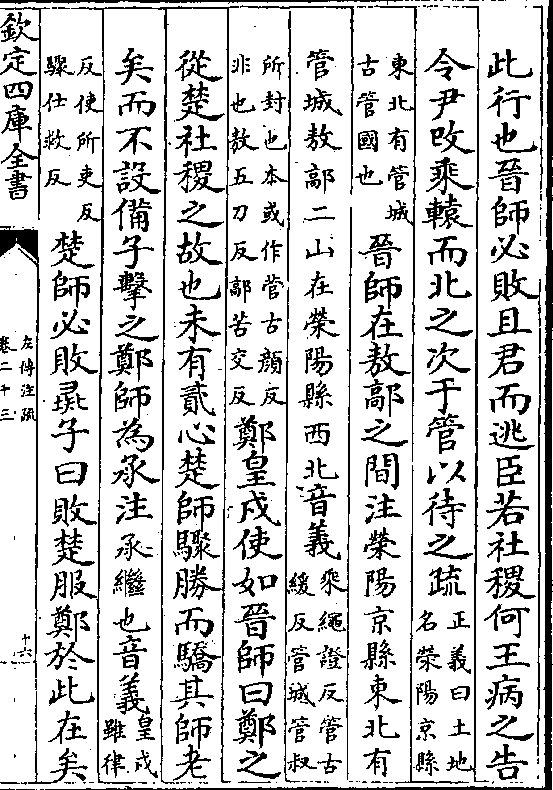 此行也晉師必敗且君而逃臣若社稷何王病之告
令尹改乘轅而北之次于管以待之疏正義曰土地名滎陽京縣
東北有管城古管國也晉師在敖鄗之間注滎陽京縣東北有
管城敖鄗二山在滎陽縣西北音義乘繩證反管古緩反管城管叔
所封也本或作菅古顔反非也敖五刀反鄗苦交反鄭皇戌使如晉師曰鄭之
從楚社稷之故也未有貳心楚師驟勝而驕其師老
矣而不設備子擊之鄭師為承注承繼也音義皇戌雖律
反使所吏反驟仕救反楚師必敗彘子曰敗楚服鄭於此在矣
欽定四庫全書
左傳注疏
卷二十三
十六